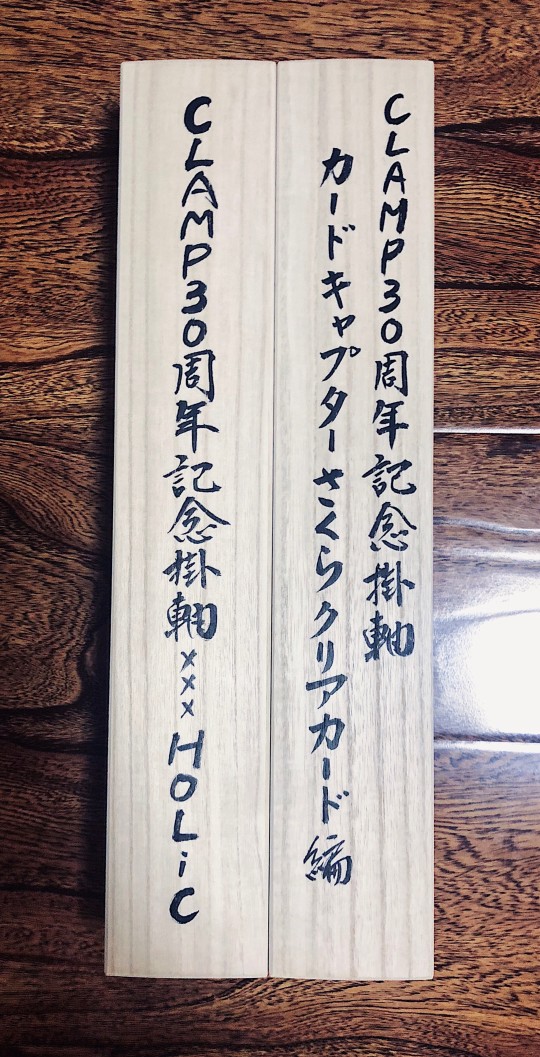 CLAMP30周年記念掛軸
カードキャプターさくらクリアカード編
CLAMP30周年記念掛軸×××HOLiC